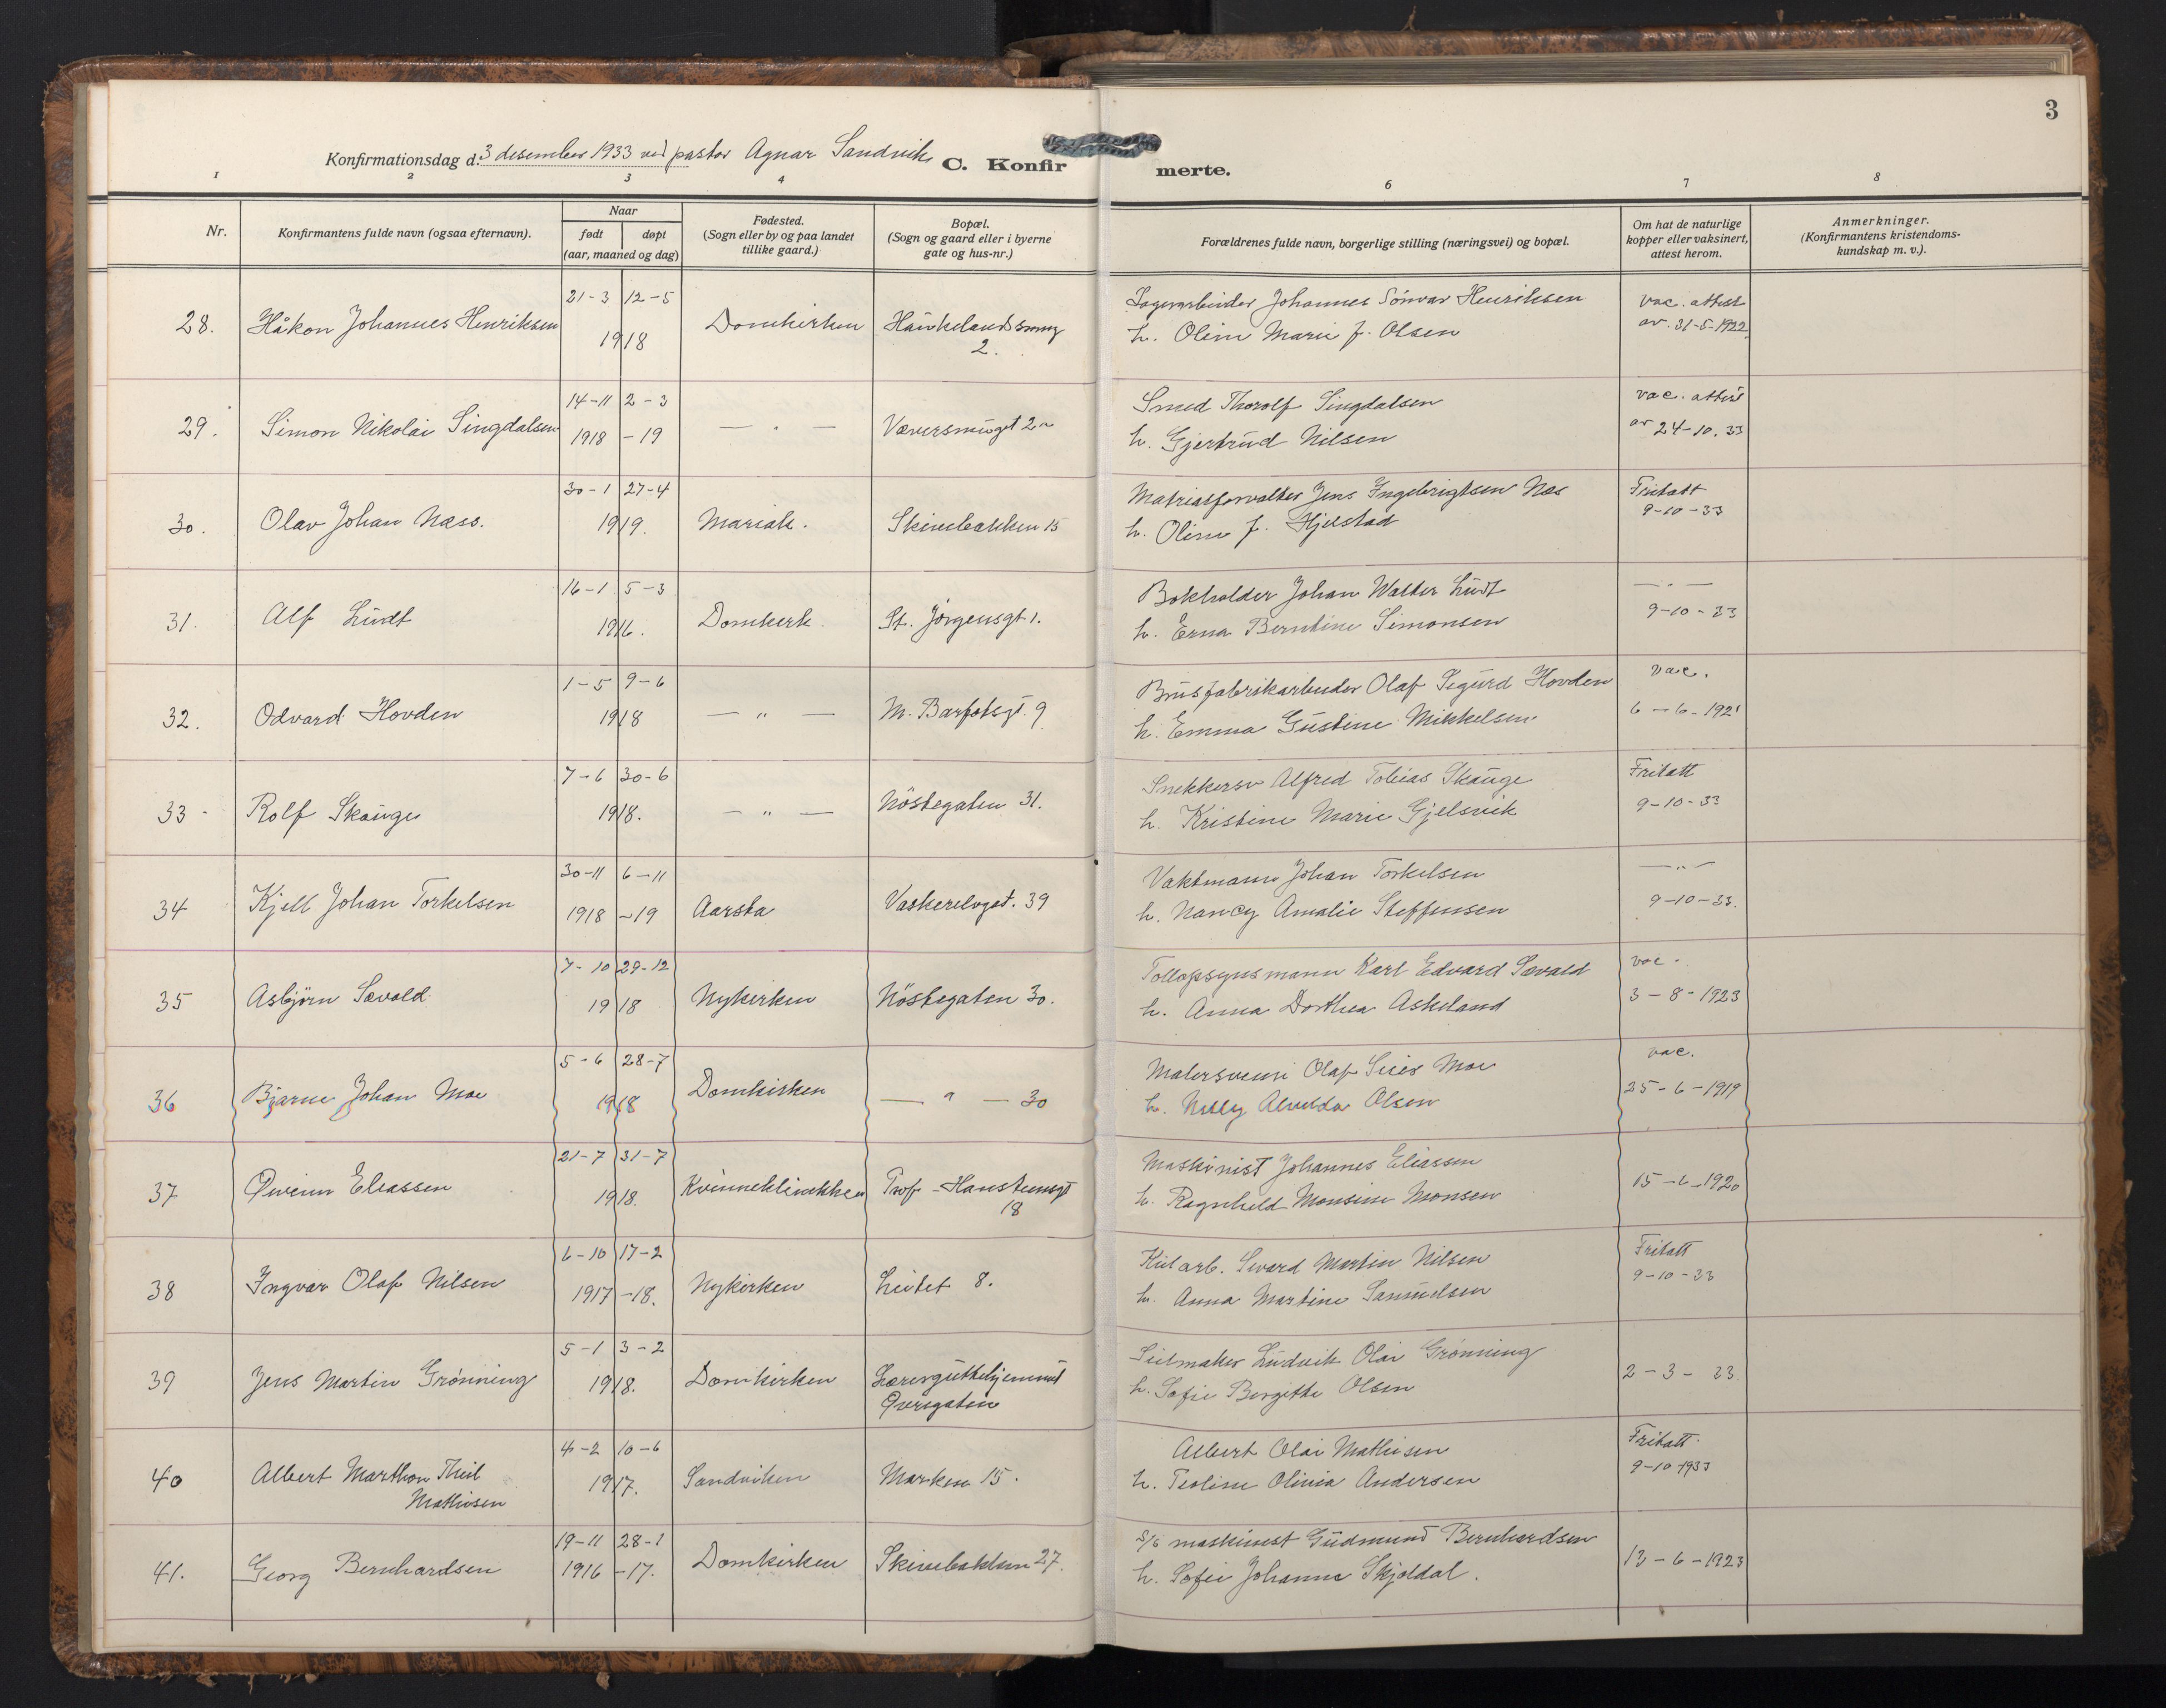 3
Konfirmationsdag d. 3 desember 1933 ved pastor Agnar Sandvik
C. Konfirmerte.
1 2 3 4 6 7 8
Nr.
Konfirmantens fulde navn (ogsaa efternavn).
Naar
født døpt
(aar, maaned og dag)
Fødested.
(Sogn eller by og paa landet
tillike gaard.)
Bopæl.
(Sogn og gaard eller i byerne
gate og hus-nr.)
Forældrenes fulde navn, borgerlige stilling (næringsvei) og bopæl.
Om hat de naturlige
kopper eller vaksinert,
attest herom.
Anmerkninger.
(Konfirmantens kristendoms-
kundskap m. v.).
21-3 12-5 Lagerarbeider Johannes Sönvar Henriksen vac. attest
28. Håkon Johannes Henriksen 1918 Domkirken Haukelandsmug av. 31-5-1922
2. h. Oline Marie f. Olsen
14-11 2-3 Smed Thorolf Singdalsen vac. attest
29. Simon Nikolai Singdalsen 1918 -19 — " — Væversmuget 2a av 24-10.33
h. Gjertrud Nilsen
30-1 27-4 Matrialforvalter Jens Ingebrigtsen Næs Fritatt
30. Olav Johan Næss. 1919. Mariak. Skivebakken 15 9-10-33
h. Oline f. Hjelstad
16-1 5-3 Bokholder Johan Walter Lúdt — " —
31. Alf Lúdt 1916. Domkirk. St. Jörgensgt 1. 9-10-33
h. Erna Berntine Simonsen
1-5 9-6 Brusfabrikarbeider Olaf Sigurd Hovden vac.
32. Odvard Hovden 1918 — " — M. Barfotsgt. 9 6-6-1921
h. Emma Gustine Mikkelsen
7-6 30-6 Snekkersv Alfred Tobias Skauge Fritatt
33 Rolf Skauge 1918. — " — Nöstegaten 31. 9-10-33
h. Kristine Marie Gjelsvik
30-11 6-11 Vaktmann Johan Torkelsen — " —
34 Kjell Johan Torkelsen 1918 -19 Aarsta Vaskerelvgt. 39 9-10-33.
h. Nancy Amalie Steffensen
7-10 29-12 Tollopsynsmann Karl Edvard Sævold vac.
35 Asbjörn Sævold 1918 Nykirken Nöstegaten 30. 3-8-1923
h. Anna Dorthea Askeland
5-6 28-7 Malersvenn Olaf Moe vac.
36 Bjarne Johan Moe 1918 Domkirken — " — 30 25-6-1919
h. Nelly Alvilda Olsen
21-7 31-7 Maskinist Johannes Eliassen
37 Øivinn Eliassen 1918. Kvinneklinikken Prof. Hansteensgt 15-6-1920
18 h. Ragnhild Monsine Monsen
6-10 17-2 Kularb. Sivard Martin Nilsen Fritatt
38 Ingvar Olaf Nilsen 1917 -18. Nykirken Leitet 8. 9-10-33
h. Anna Martine Samuelsen
5-1 3-2 Seilmaker Ludvik Olai Grønning
39 Jens Martin Grønning 1918. Domkirken Læreguttehjemmet 2-3-33.
Øvregaten h. Sofie Bergitte Olsen
4-2 10-6 Albert Olai Mathisen Fritatt.
40 Albert Marthon Theil 1917. Sandviken Marken 15. 9-10-1933
Mathisen h. Teoline Olivia Andersen
19-11 28-1 S/S maskinist Gudmund Bernhardsen
41. Georg Bernhardsen 1916 -17. Domkirken Skivebakken 27. 12-6-1923
h. Sofie Johanne Skjoldal.